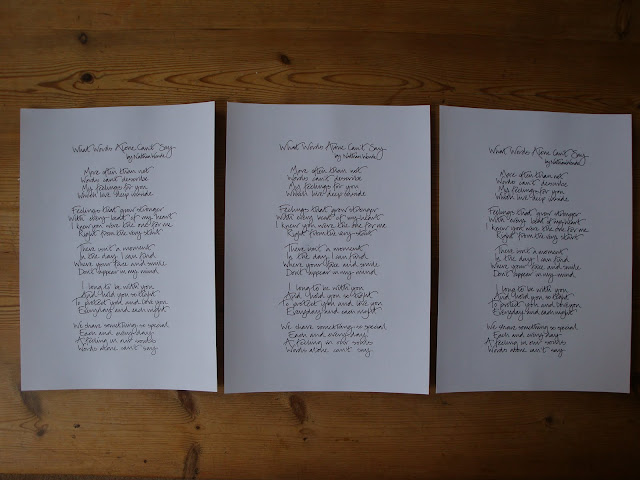 What Words Alone Can't Say
by Nathan
More often than not
Words can't describe
My feelings for you
Which live deep inside
Feelings that grow stronger
With every beat of my heart
I knew you were the one for me
Right from the very start
There isn't a moment
In the day I can find
Where your face and smile
Don't appear in my mind
I long to be with you
And hold you so tight
To protect you and love you
Everyday and each night
We share something so special
Each and everyday
A feeling in our souls
Words alone can't say.
What Words Alone Can't Say
by Nathan
More often than not
Words can't describe
My feelings for you
Which live deep inside
Feelings that grow stronger
With every beat of my heart
I knew you were the one for me
Right from the very start
There isn't a moment
In the day I can find
Where your face and smile
Don't appear in my mind
I long to be with you
And hold you so tight
To protect you and love you
Everyday and each night
We share something so special
Each and everyday
A feeling in our souls
Words alone can't say.
What Words Alone Can't Say
by Nathan
More often than not
Words can't describe
My feelings for you
Which live deep inside
Feelings that grow stronger
With every beat of my heart
I knew you were the one for me
Right from the very start
There isn't a moment
In the day I can find
Where your face and smile
Don't appear in my mind
I long to be with you
And hold you so tight
To protect you and love you
Everyday and each night
We share something so special
Each and everyday
A feeling in our souls
Words alone can't say.